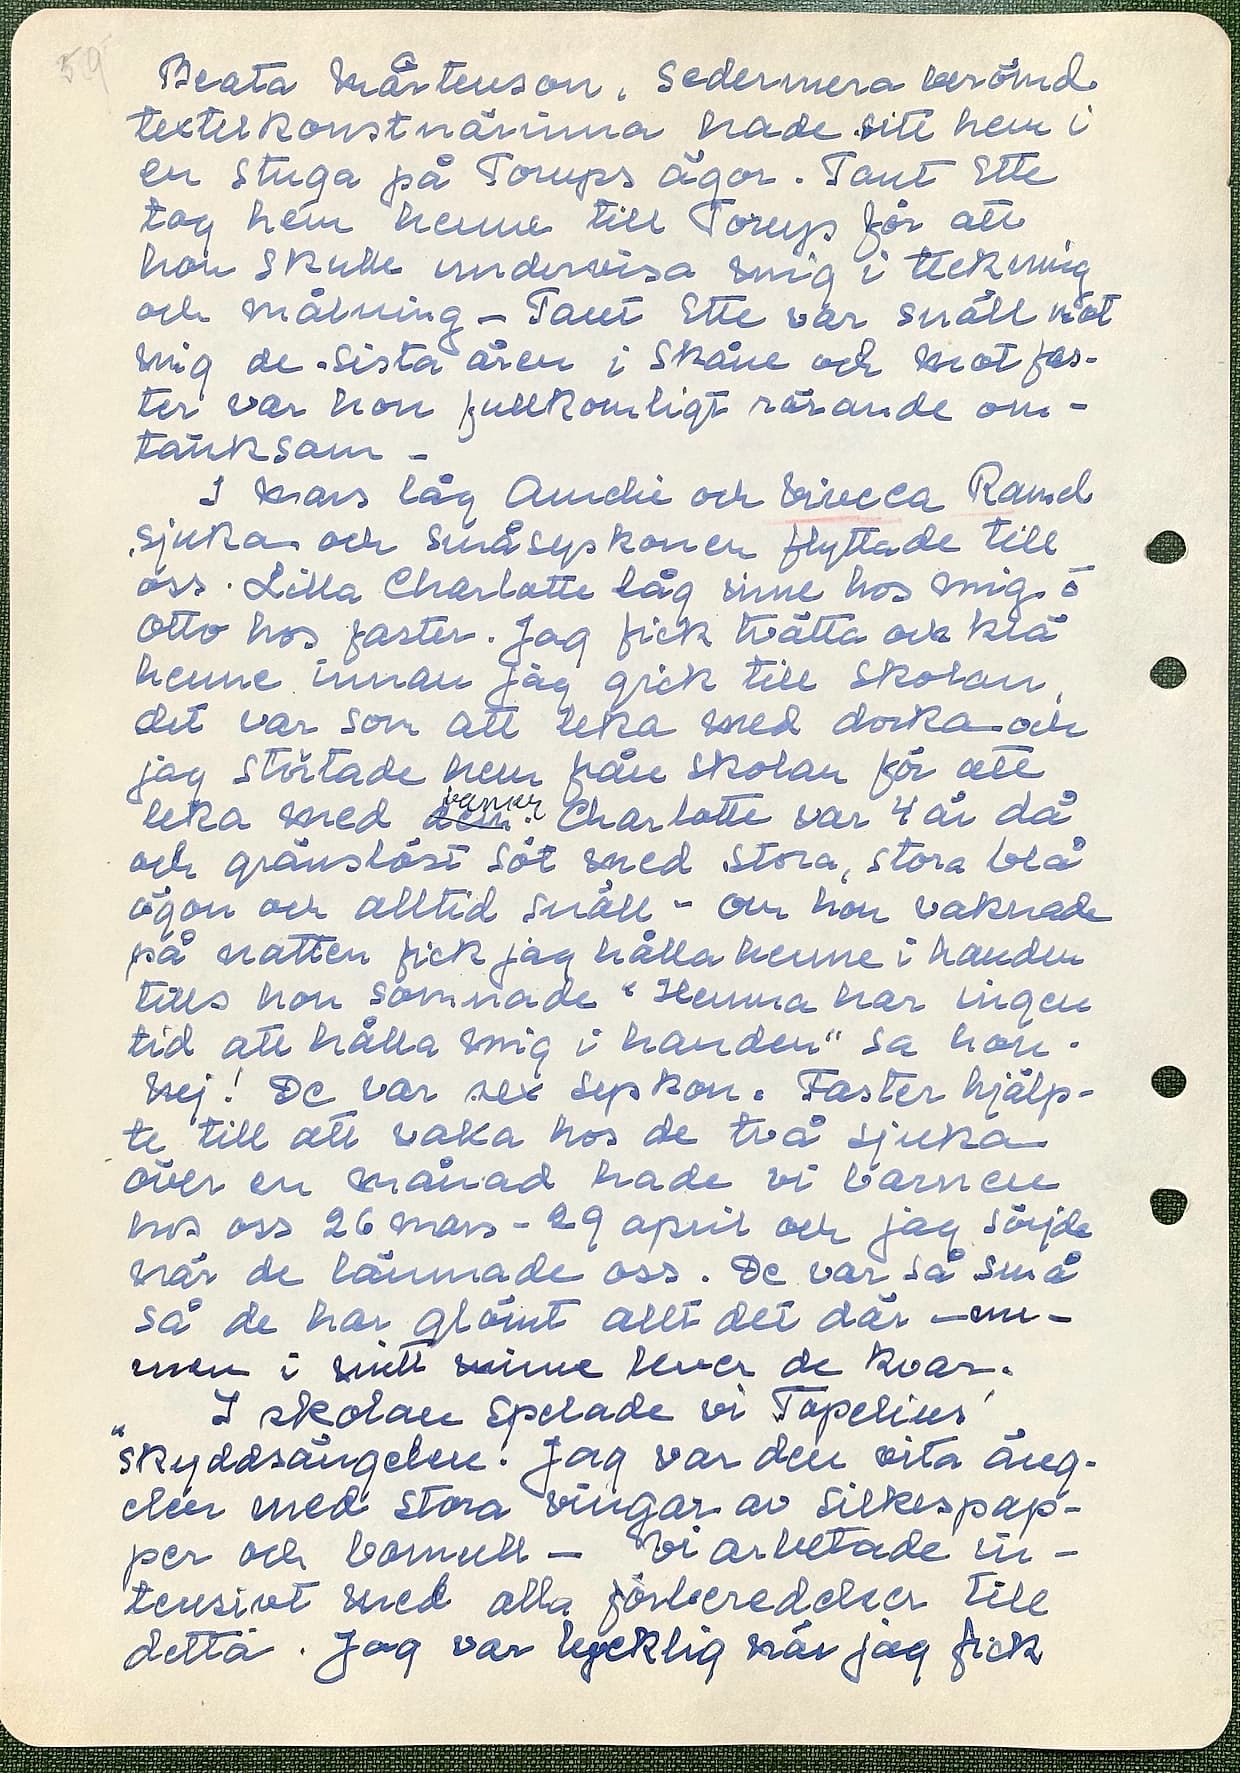 59
Beata Mårtenson, sedermera berömd
textilkonstnärinna hade sitt hem i
en stuga på Torups ägor. Tant Ette
tog hem henne till Torup för att
hon skulle undervisa mig i teckning
och målning – Tant Ette var snäll mot
mig de sista åren i Skåne och mot fas-
ter var hon fullkomligt rörande om-
tänksam –
I mars låg och Vivecca Ramel
sjuka och småsyskonen flyttade till
oss. Lilla Charlotte låg inne hos mig o
Otto hos faster. Jag fick tvätta och klä
henne innan jag gick till skolan,
det var som att leka med docka och
jag störtade hem från skolan för att
leka med dem barnen. Charlotte var 4 år då
och gränslöst söt med stora, stora blå
ögon och alltid snäll – Om hon vaknade
på natten fick jag hålla henne i handen
tills hon somnade "Hemma har ingen
tid att hålla mig i handen" sa hon.
Nej! De var sex syskon. Faster hjälp-
te till att vaka hos de två sjuka
över en månad hade vi barnen
hos oss 26 mars – 29 april och jag sörjde
när de lämnade oss. De var så små
så de har glömt allt det där –
men i mitt minne lever de kvar.
I skolan spelade vi Topelius'
"Skyddsängeln". Jag var den vita äng-
eln med stora vingar av silkespap-
per och bomull – Vi arbetade in-
tensivt med alla förberedelser till
detta. Jag var lycklig när jag fick